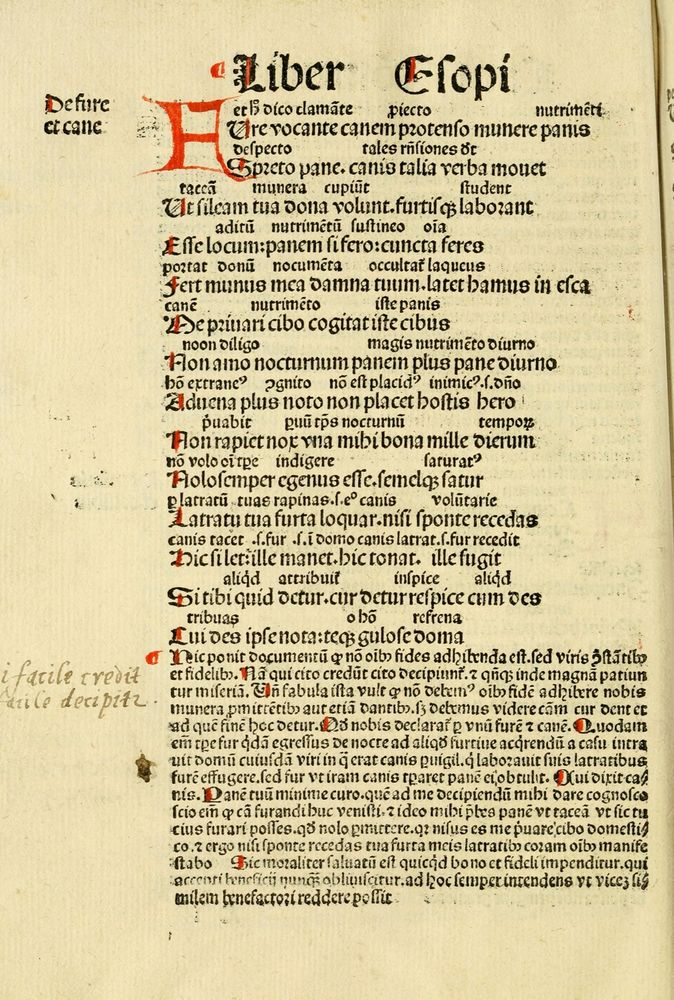 Liber Esopi
De fure
et cane
et hꝫ dico clamãte ꝓiecto nutrimẽti
Fvre vocante canem protenso munere panis
despecto tales rñsiones dt̄
Spreto pane. canis talia verba mouet
taceã munera cupiũt student
Ut sileam tua dona volunt. furtisqꝫ laborant
aditũ nutrimẽtũ sustineo oĩa
Esse locum: panem si fero: cuncta feres
portat donũ nocumẽta occultat̃ laqueus
Fert munus mea damna tuum. latet hamus in esca
canẽ nutrimẽto iste panis
Me priuari cibo cogitat iste cibus
noon diligo magis nutrimẽto diurno
Non amo nocturnum panem plus pane diurno
hõ extraneꝰ ꝯgnito nõ est placidꝰ inimicꝰ .s. dño
Aduena plus noto non placet hostis hero
p̃uabit ꝑuũ tp̃s nocturnũ temporꝝ
Non rapiet nox vna mihi bona mille dierum
nõ volo oĩ tꝑe indigere saturatꝰ
Nolo semper egenus esse. semelqꝫ satur
ꝑ latratũ tuas rapinas .s. eᵒ canis volũtarie
Latratu tua furta loquar. nisi sponte recedas
canis tacet .s. fur .s. ĩ domo canis latrat .s. fur recedit
Hic silet: ille manet. hic tonat. ille fugit
aliqd attribuit̃ inspice aliqd
Si tibi quid detur. cur detur respice cum des
tribuas o hõ refrena
Cui des ipse nota: teqꝫ gulose doma
Hic ponit documentũ ꝙ nõ oĩbꝫ fides adhibenda est. sed viris ꝯstãtibꝫ
et fidelibꝫ. Nam qui cito credũt cito decipiunt̃. ⁊ qñqꝫ inde magnã patiun
tur miseriã. Uñ fabula ista vult ꝙ nõ debemꝰ oĩbꝫ fidẽ adhibere nobis
munera ꝓmittentibꝫ aut etiã dantibꝫ. sꝫ debemus videre cãm cur dent et
ad quẽ finẽ hoc detur. Qd̃ nobis declarat̃ ꝑ vnũ furẽ ⁊ canẽ. Quodam
em̃ tꝑe fur qdã egressus de nocte ad aliqd furtiue acqrendũ a casu intra
uit domũ cuiusdã viri in q̃ erat canis ꝑuigil. q̃ laborauit suis latratibus
furẽ effugere. sed fur vt iram canis tꝑaret panẽ ei obtulit. Cui dixit ca
nis. Panẽ tuũ minime curo. quẽ ad me decipiendũ mihi dare cognosco
scio em̃ ꝙ cãm furandi huc venisti. ⁊ ideo mihi p̃bes panẽ vt taceã vt sic tu
cius furari posses. qd̃ nolo ꝑmittere. qr nisus es me p̃uare cibo domesti
co. ⁊ ergo nisi sponte recedas tua furta meis latratibꝫ coram oĩbꝫ manife
stabo Sic moraliter saluatũ est quicqd bono et fideli impenditur. qui
accepti beneficij nunqꝫ obliuiscitur. ad hoc semper intendens vt vicez si
milem benefactori reddere possit
i facile credit
facile decipitr.